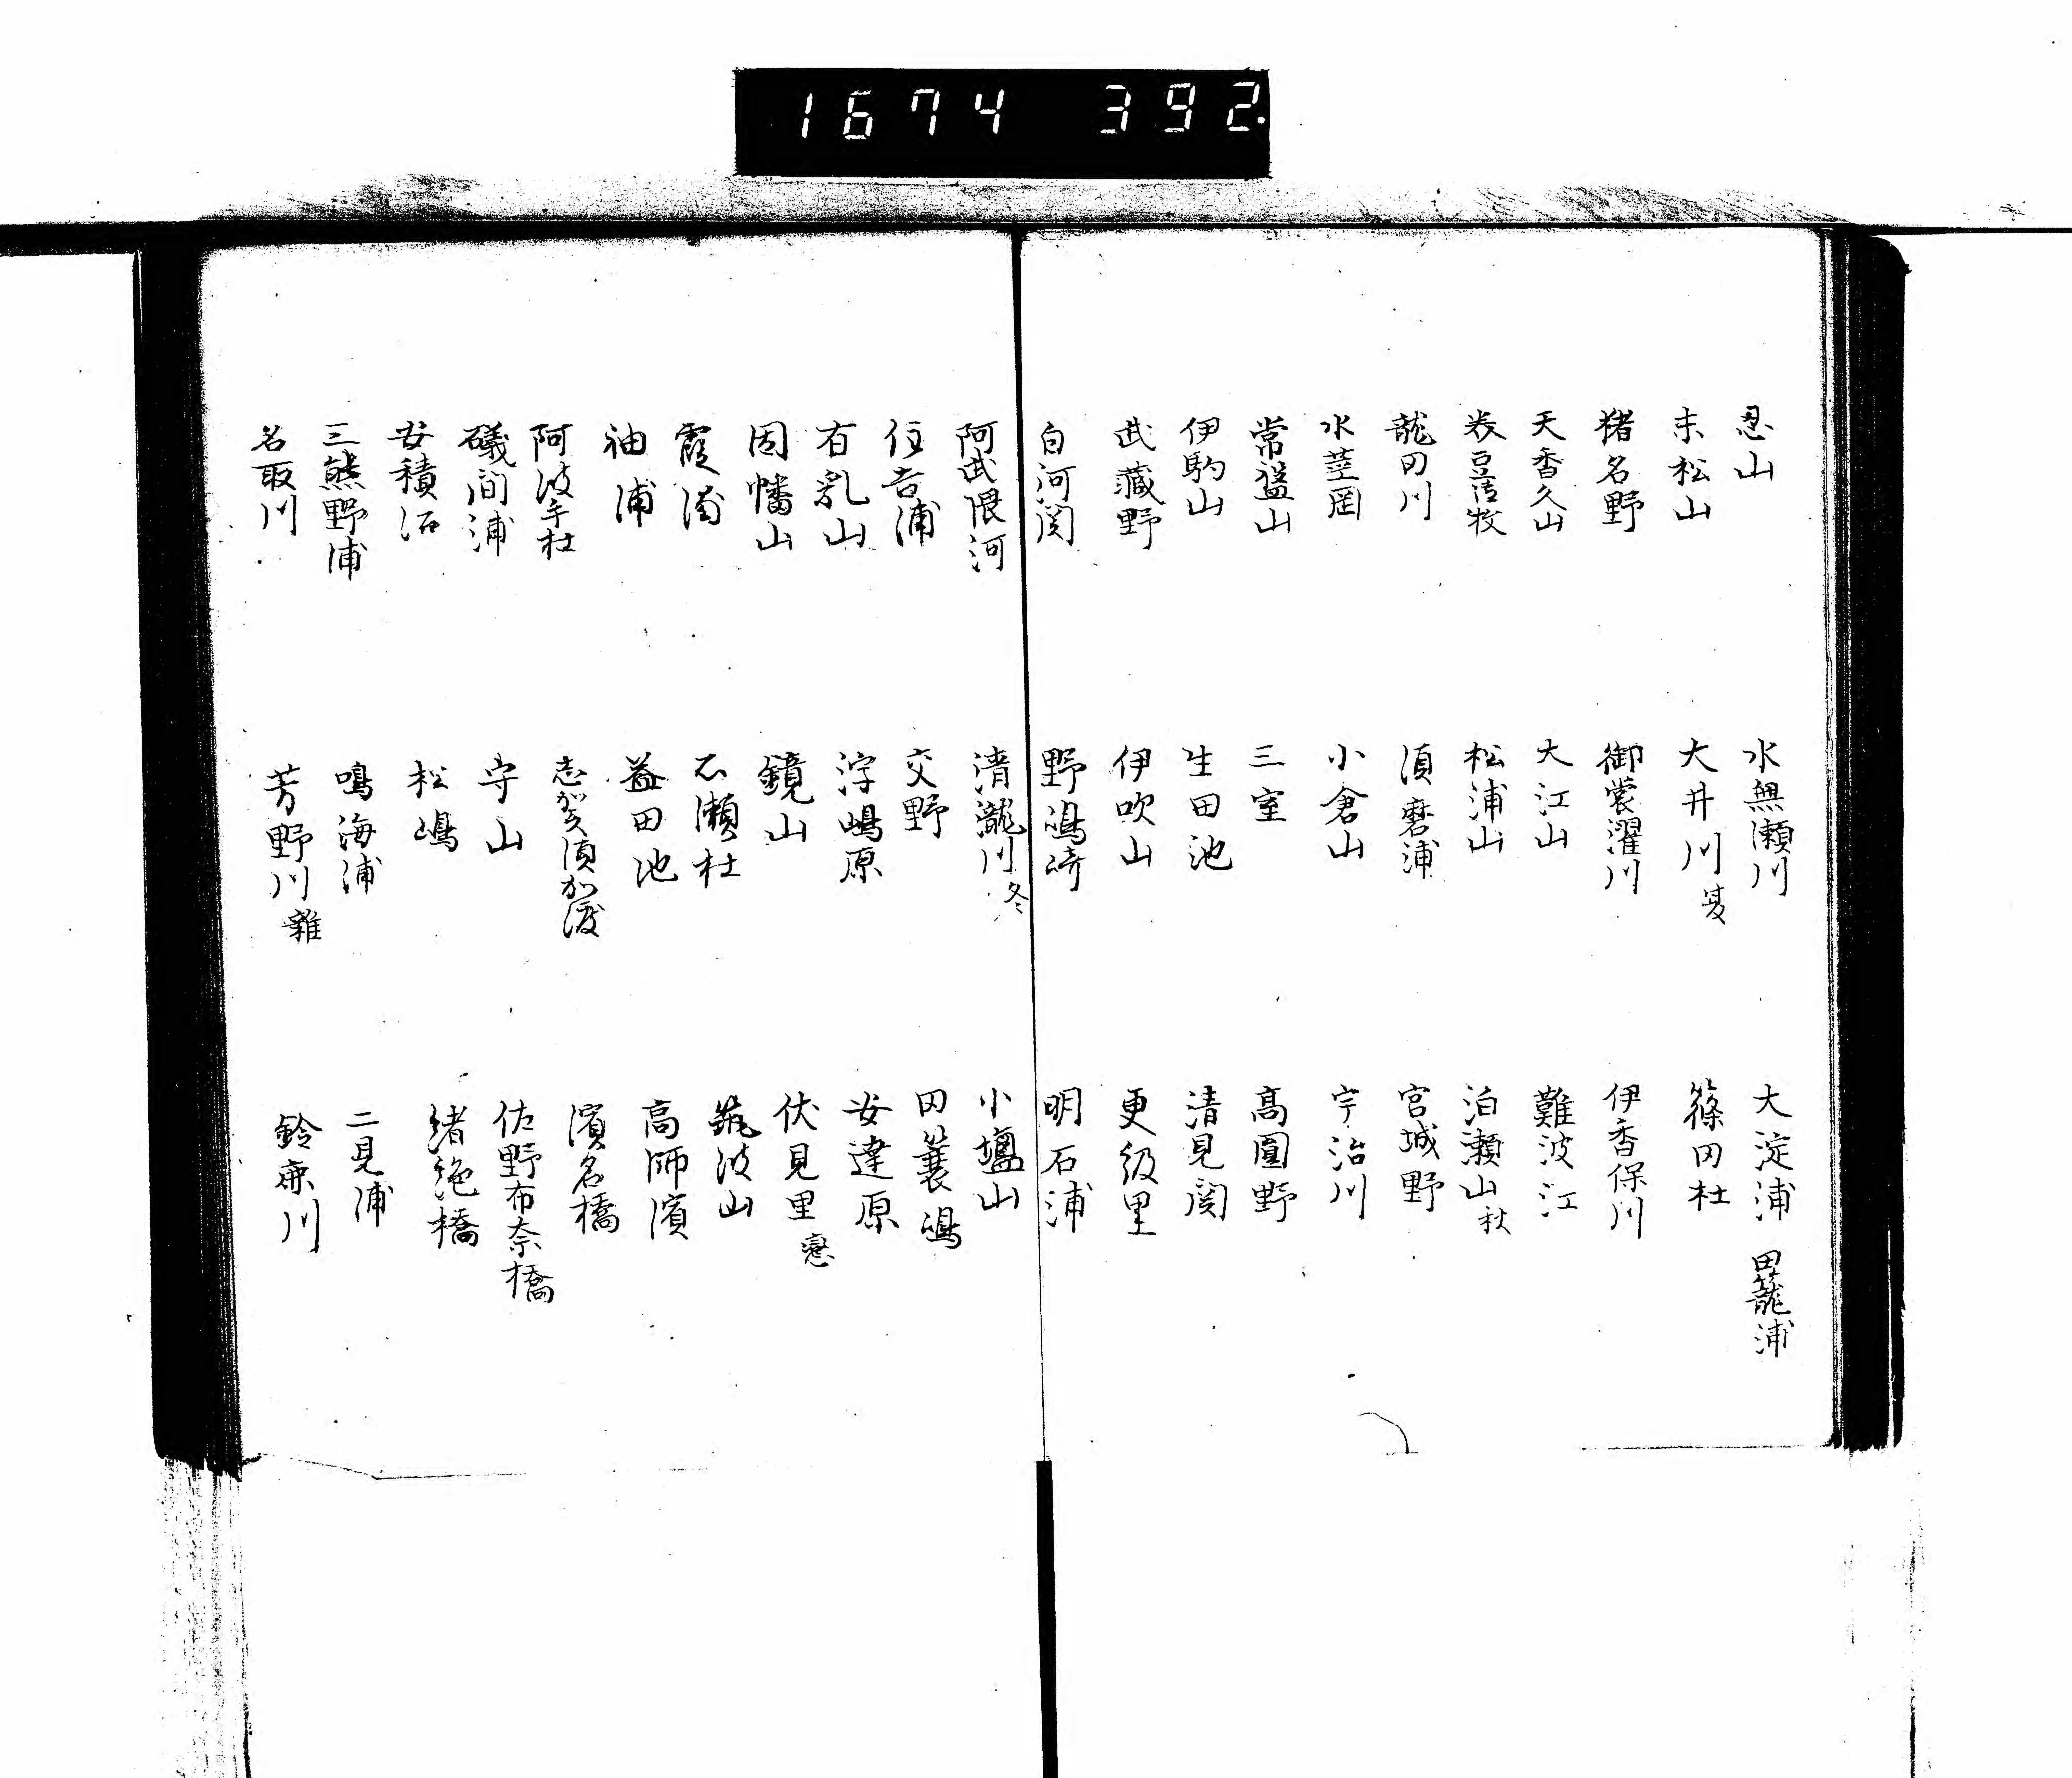 1674 392.
忍山 水無瀬川 大淀浦 田籠浦
末松山 大井川 夏 篠田杜
猪名野 御裳濯川 伊香保川
天香久山 大江山 難波江
美豆御牧 松浦山 泊瀬山 秋
龍田川 須磨浦 宮城野
水茎罡 小倉山 宇治川
常盤山 三室 高圓野
伊駒山 生田池 清見関
武蔵野 伊吹山 更級里
白河関 野嶋崎 明石浦
阿武隈河 清瀧川 冬 小塩山
住吉浦 交野 田蓑嶋
有乳山 浮嶋原 安達原
因幡山 鏡山 伏見里 戀
霞浦 石瀬杜 筑波山
袖浦 益田池 高師濱
阿波手杜 志賀須加渡 濱名橋
礒間浦 守山 佐野布奈橋
安積沼 松嶋 緒絶橋
三熊野浦 鳴海浦 二見浦
名取川 芳野川 雜 鈴鹿川